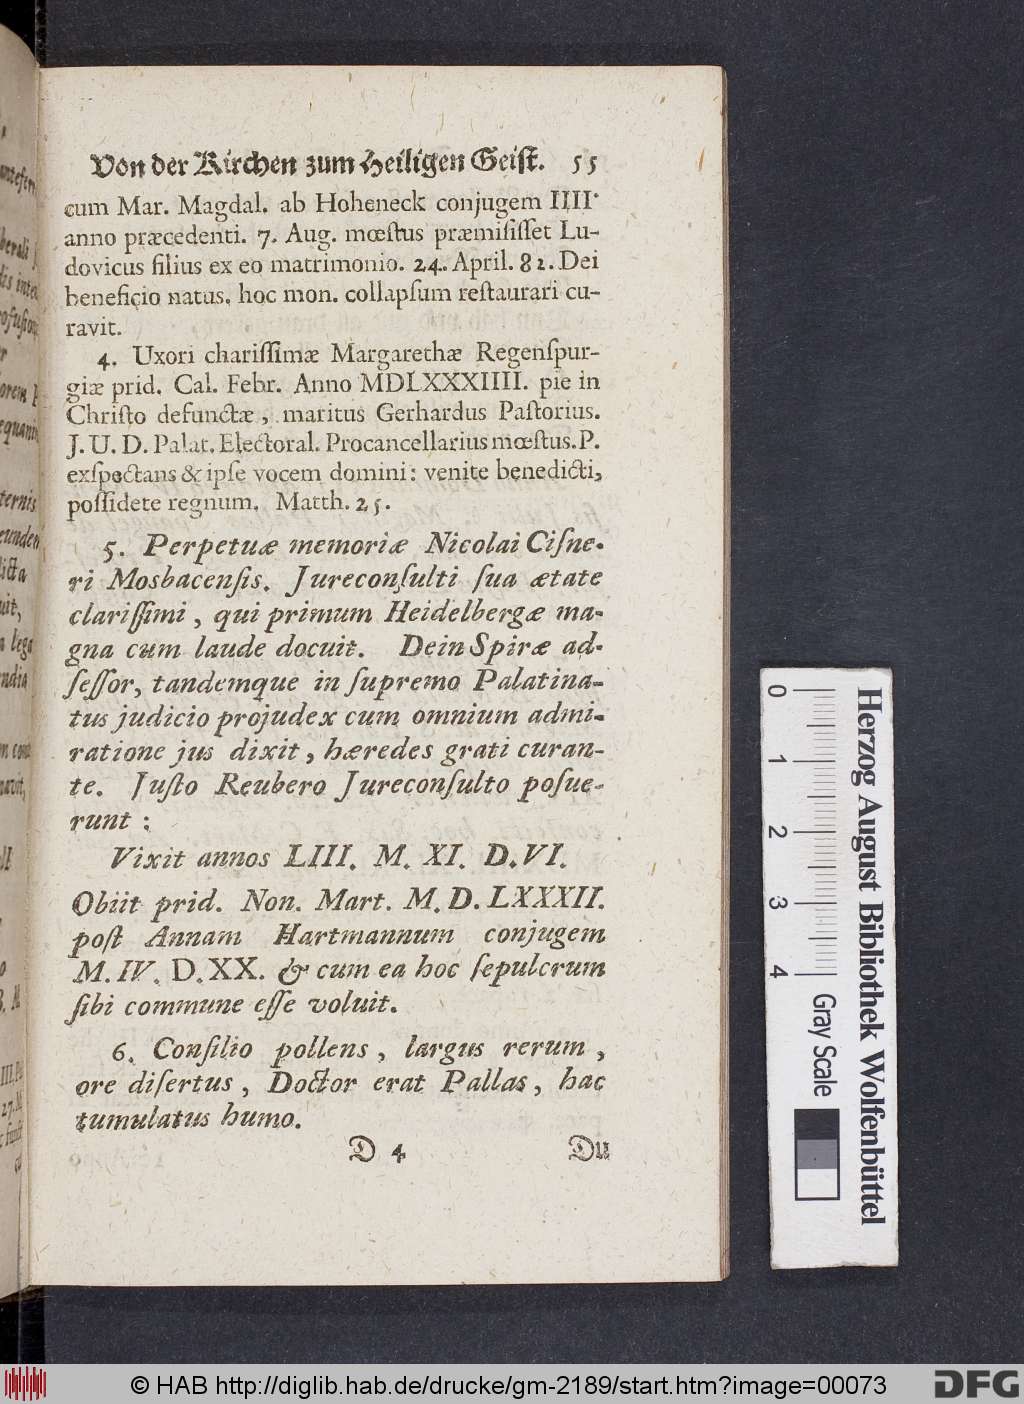 Von der Kirchen zum Heiligen Geist. 55
cum Mar. Magdal. ab Hoheneck conjugem IIII
anno præcedenti. 7. Aug. mœſtus præmiſiſſet Lu-
dovicus filius ex eo matrimonio. 24. April. 82. Dei
beneficio natus, hoc mon. collapſum reſtaurari cu-
ravit.
4. Uxori chariſſimæ Margarethæ Regenſpur-
giæ prid. Cal. Febr. Anno MDLXXXIIII. pie in
Chriſto defunctæ, maritus Gerhardus Paſtorius.
J. U. D. Palat. Electoral. Procancellarius mœſtus. P.
exſpectans & ipſe vocem domini: venite benedicti,
poſſidete regnum. Matth. 25.
5. Perpetuæ memoriæ Nicolai Ciſne-
ri Mosbacenſis. Jureconſulti ſua ætate
clariſſimi, qui primum Heidelbergæ ma-
gna cum laude docuit. Dein Spiræ ad-
ſeſſor, tandemque in ſupremo Palatina-
tus judicio projudex cum omnium admi-
ratione jus dixit, hæredes grati curan-
te. Juſto Reubero Jureconſulto poſue-
runt:
Vixit annos LIII. M. XI. D. VI.
Obiit prid. Non. Mart. M. D. LXXXII.
poſt Annam Hartmannum conjugem
M. IV. D. XX. & cum ea hoc ſepulcrum
ſibi commune eſſe voluit.
6. Conſilio pollens, largus rerum,
ore diſertus, Doctor erat Pallas, hac
tumulatus humo.
D 4 Du
0 1 2 3 4
Gray Scale
Herzog August Bibliothek Wolfenbüttel
© HAB http://diglib.hab.de/drucke/gm-2189/start.htm?image=00073
DFG